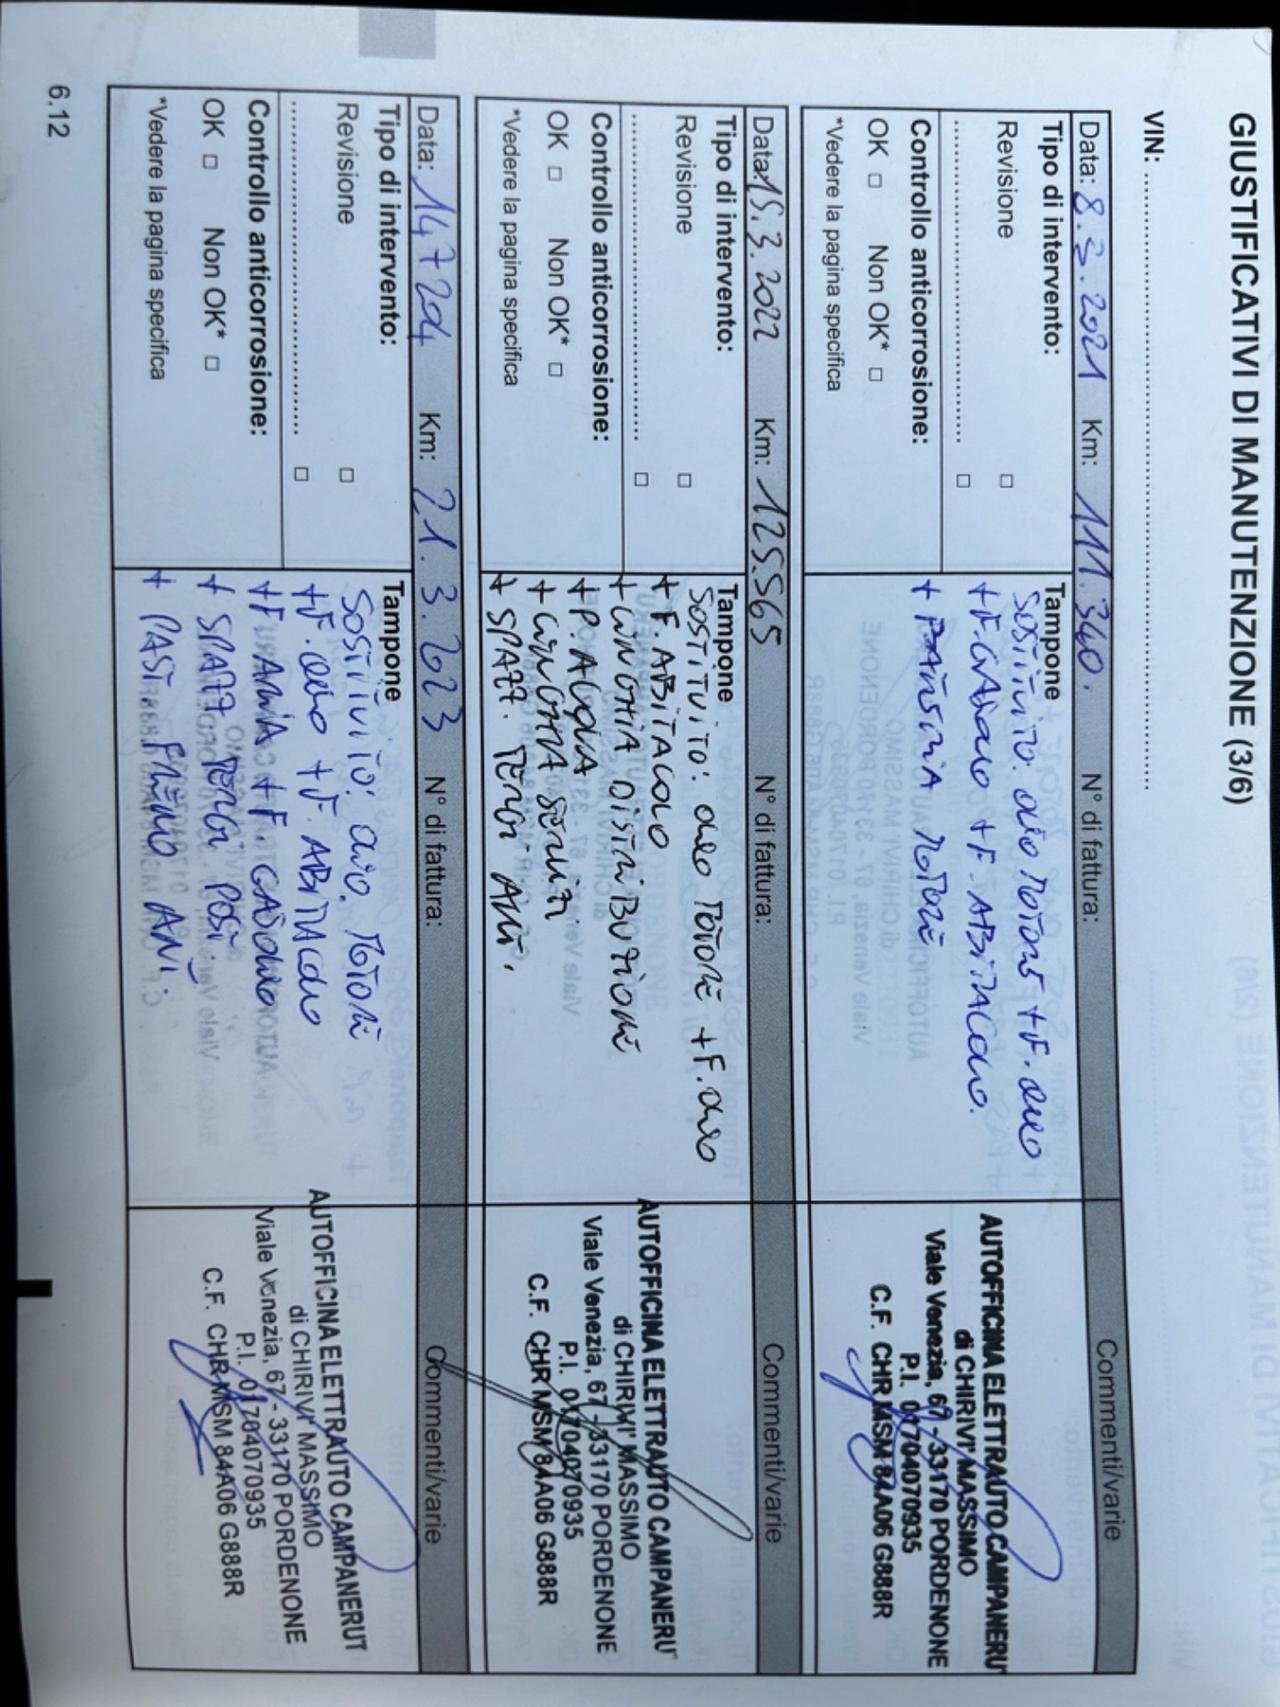 GIUSTIFICATIVI DI MANUTENZIONE (3/6)
VIN: ............................................................
Data: 8.3.2021 Km: 111.340. N° di fattura: Commenti/varie
Tipo di intervento:
Revisione □
.................................................. □
Controllo anticorrosione:
OK □ Non OK* □
*Vedere la pagina specifica
Tampone
SOSTITUITO: OLIO MOTORE + F. OLIO
+ F. GASOLIO + F. ABITACOLO.
+ BATTERIA MOTORE
AUTOFFICINA ELETTRAUTO CAMPANERU
di CHIRIVI' MASSIMO
Viale Venezia, 67 - 33170 PORDENONE
P.I. 01704070935
C.F. CHR MSM 84A06 G888R
Data: 15.3.2022 Km: 125.565 N° di fattura: Commenti/varie
Tipo di intervento:
Revisione □
.................................................. □
Controllo anticorrosione:
OK □ Non OK* □
*Vedere la pagina specifica
Tampone
SOSTITUITO: OLIO MOTORE + F. OLIO
+ F. ABITACOLO
+ CINGHIA DISTRIBUZIONE
+ P. ACQUA
+ CINGHIA SERVIZI
+ SPAZZ. TERGI ANT.
AUTOFFICINA ELETTRAUTO CAMPANERU
di CHIRIVI' MASSIMO
Viale Venezia, 67 - 33170 PORDENONE
P.I. 01704070935
C.F. CHR MSM 84A06 G888R
Data: 147204 Km: 21.3.2023 N° di fattura: Commenti/varie
Tipo di intervento:
Revisione □
.................................................. □
Controllo anticorrosione:
OK □ Non OK* □
*Vedere la pagina specifica
Tampone
SOSTITUITO: OLIO MOTORE
+ F. OLIO + F. ABITACOLO
+ F. ARIA + F. GASOLIO
+ SPAZZ TERGI POST
+ PAST. FRENO ANT.
AUTOFFICINA ELETTRAUTO CAMPANERUT
di CHIRIVI' MASSIMO
Viale Venezia, 67 - 33170 PORDENONE
P.I. 01704070935
C.F. CHR MSM 84A06 G888R
6.12